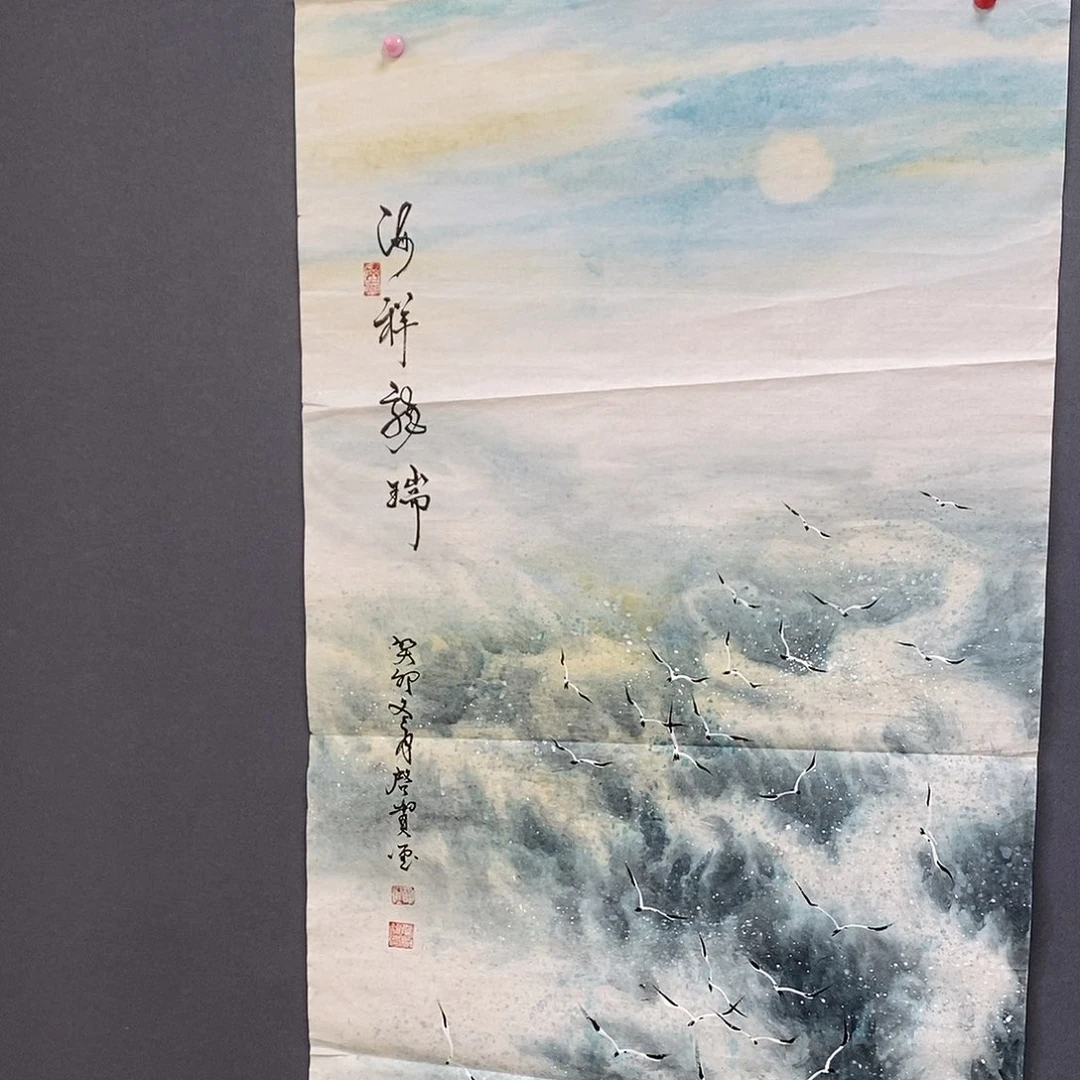 海祥龍瑞
癸卯冬月啓貴